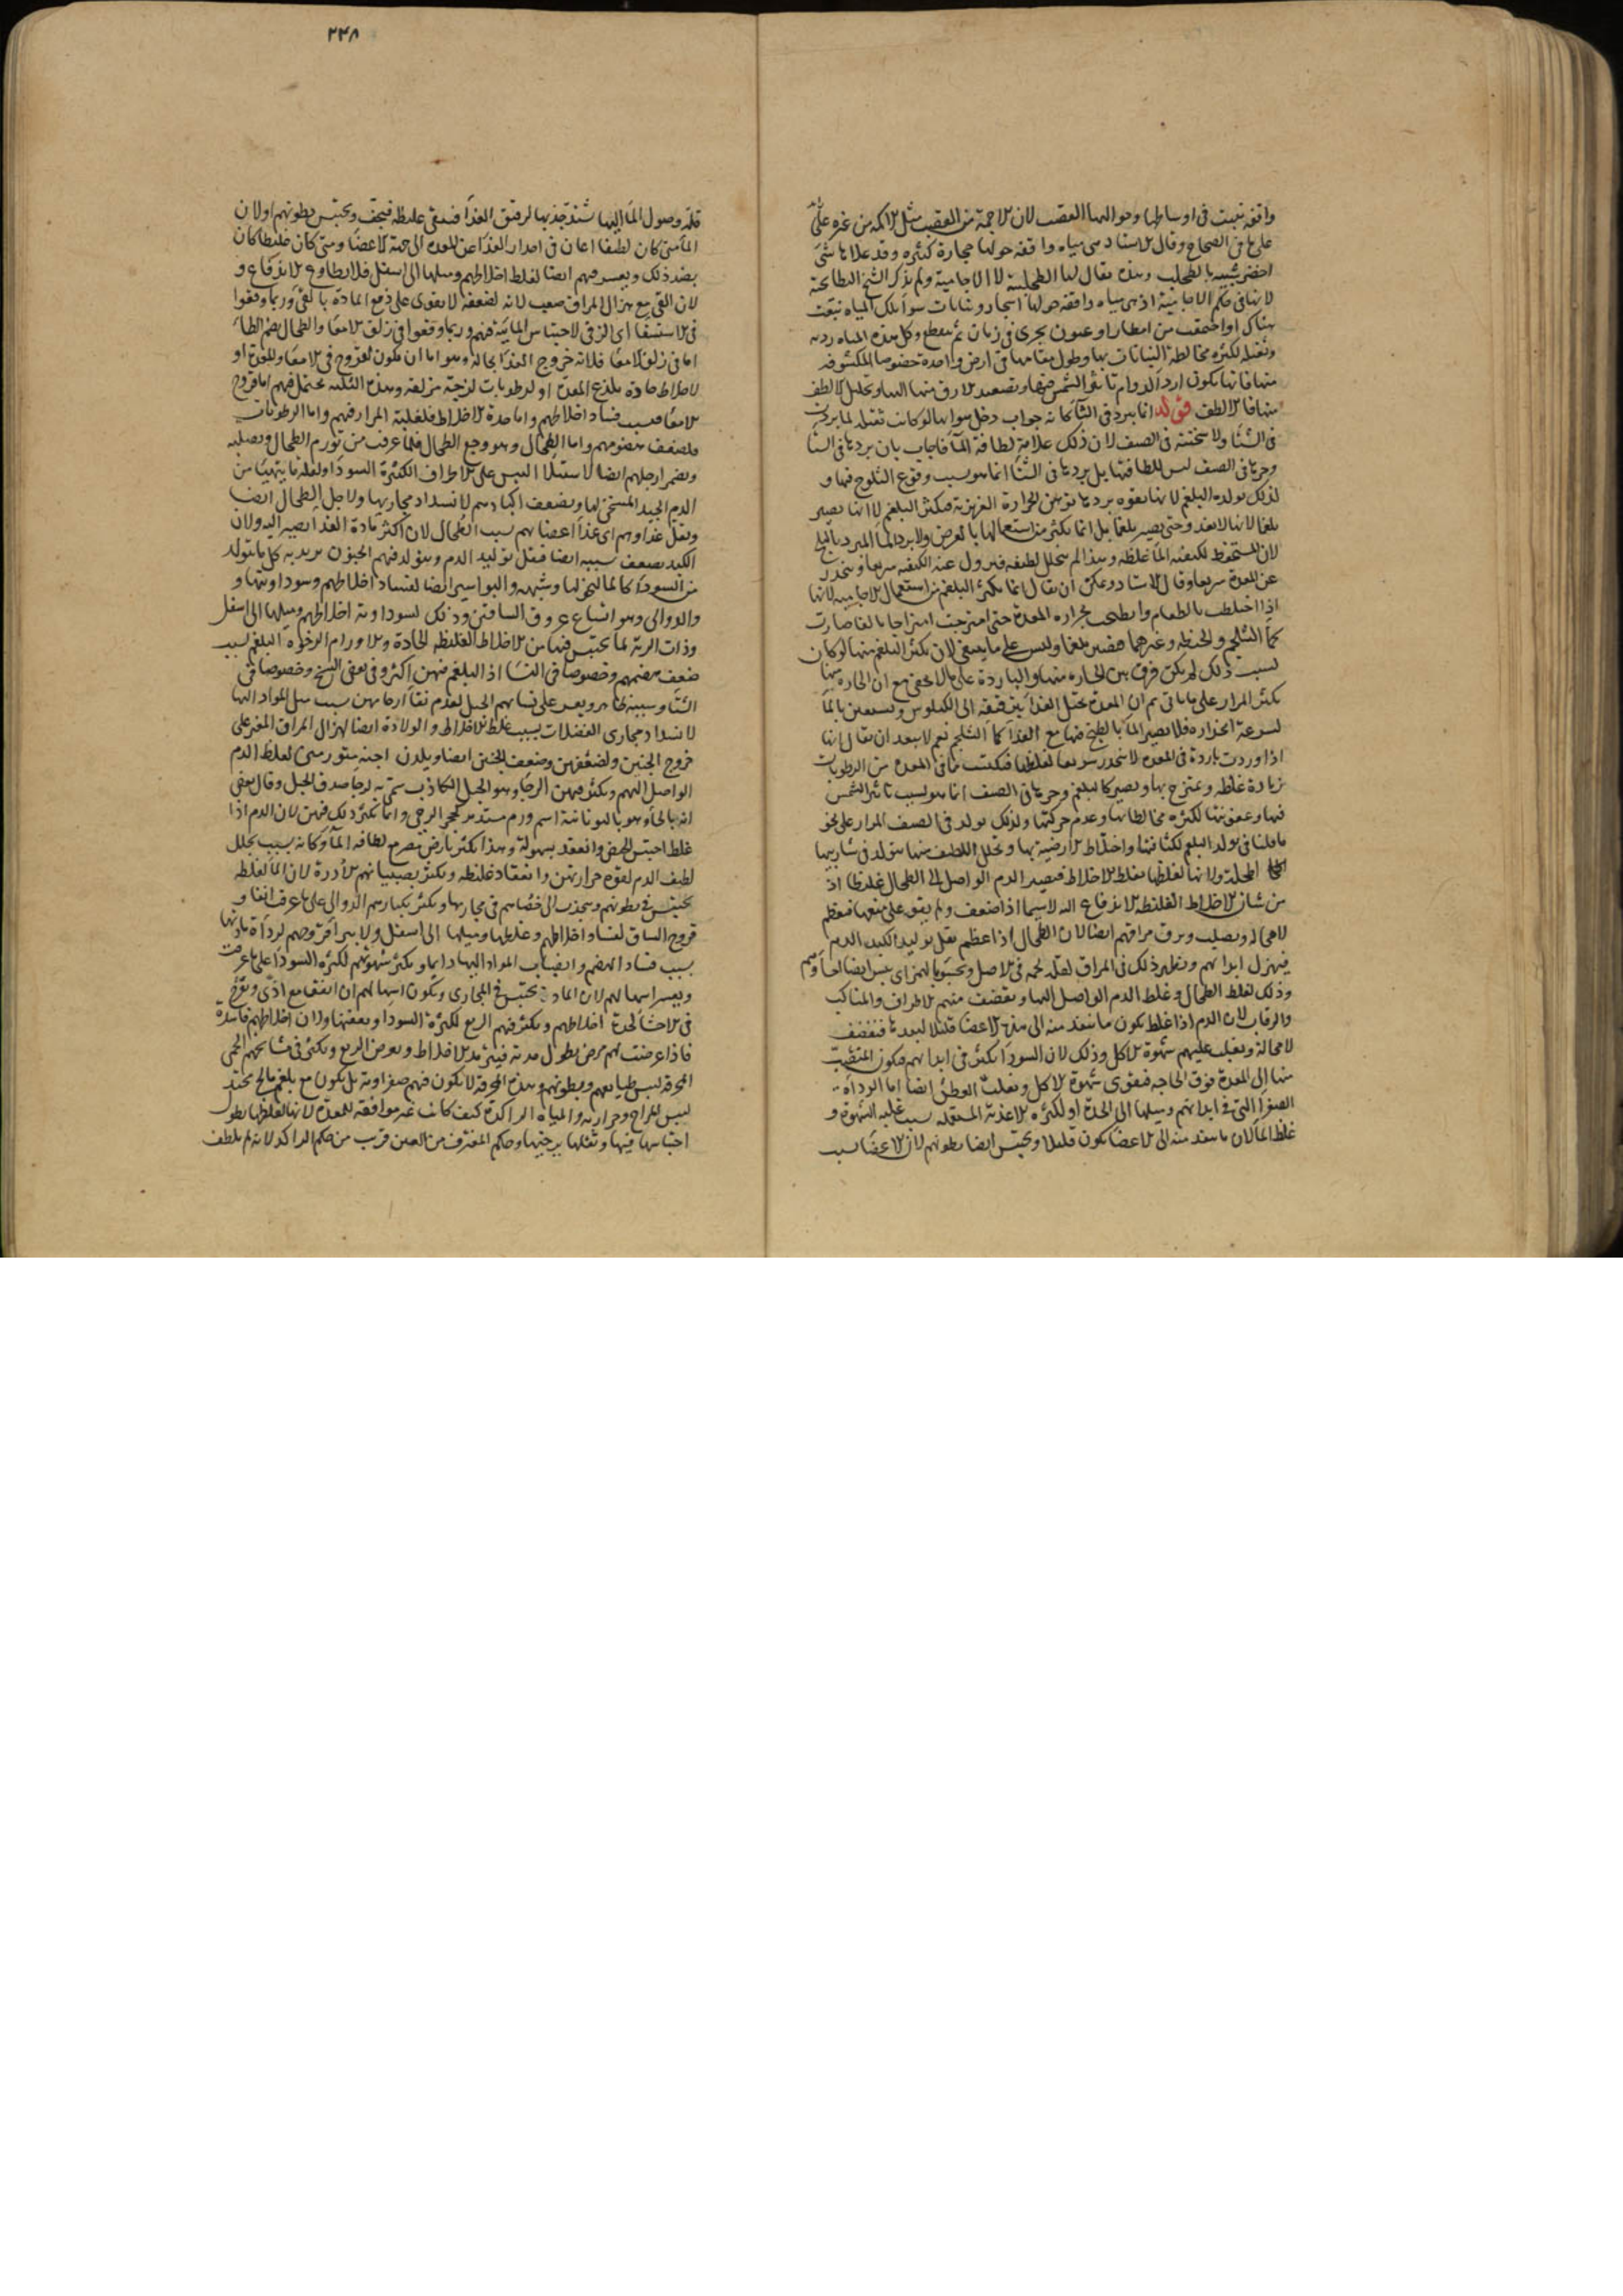 واقفة تنبت في اوساطها وحواليها القصب لان الاجمة من القصب مثل الاكمة من غيره على
على ما في الصحاح وقال الاستاد هي مياه واقفة حولها حجارة كثيرة وقد علاها شئ
اخضر شبيه بالطحلب وهذه يقال لها الطحلبية لا الاجامية ولم يذكر الشيخ البطائحية
لانها في حكم الاجامية اذ هي مياه واقفة حولها اشجار ونباتات سواء تلك المياه نبعت
هناك او اجتمعت من امطار او عيون يجرى في زمان ثم ينقطع وكل هذه المياه ردية
وثقيلة لكثرة مخالطة النباتات بها وطول مقامها في ارض واحدة خصوصا المكشوفة
منها فانها يكون اردأ لدوام تاثير الشمس فيها وتصعيد الارق منها اليها وتحليل الالطف
منها فالالطف قوله انما يبرد في الشتا كانه جواب دخل هو انها لو كانت ثقيلة لما بردت
في الشتا ولا سخنت في الصيف لان ذلك علامة لطافة الما فاجاب بان بردها في الشتا
وحرها في الصيف ليس للطافتها بل بردها في الشتا انما هو بسبب وقوع الثلوج فيها و
لذلك تولد البلغم لانها بقوة بردها توهن الحرارة الغريزية فيكثر البلغم لا انها تصير
بلغما لانها لا تغذو حتى يصير بلغما بل انما يكثر من استعمالها بالعرض ولا يرد الما المبرد بالثلج
لان المستحفظ لكيفيته الما غلظه وهذا لم يتحلل لطيفه فيزول عنه الكيفية سريعا وينحدر
عن المعدة سريعا وقال الاستاد ويمكن ان يقال انما يكثر البلغم من استعمال الاجامية لانها
اذا اختلطت بالطعام وانطبخت بحرارة المعدة حتى امتزجت امتزاجا بالغا صارت
كما الثلجم والحنطة وغيرهما فتصير بلغما وليس على ما ينبغى لان يكثر البلغم منها لو كان
بسبب ذلك لم يكن فرق بين الحارة منها والباردة على ما لا يخفى مع ان الحارة منها
يكثر المرار على ما ياتى ثم ان المعدة تحيل الغذا بترقيقه الى الكيلوس وتستعين بالما
لسرعة انحداره فلا يصير الما بالطبخ فيها مع الغذا كما الثلجم نعم لا يبعد ان يقال انها
اذا وردت باردة في المعدة لا تنحدر سريعا لغلظها فيكتسب ما في المعدة من الرطوبات
زيادة غلظة ويمتزج بها ويصير كالبلغم وحرها في الصيف انما هو بسبب تاثير الشمس
فيها وعفونتها لكثرة مخالطاتها وعدم حركتها ولذلك تولد في الصيف المرار على نحو
ما قلنا في تولد البلغم لكثافتها واختلاط الارضية بها وتحلل اللطيف منها يتولد في شاربيها
اطحلة ولانها لغلظها تغلظ الاخلاط فيصير الدم الواصل الى الطحال غليظا اذ
من شان الاخلاط الغليظة الاندفاع اليه لا سيما اذا ضعف ولم يقو على منعها فيعظم
لا محالة ويصلب ويرق مراقهم ايضا لان الطحال اذا عظم يقل توليد الكبد الدم
فيهزل ابدانهم ويظهر ذلك في المراق لقلة لحمه في الاصل ويحسو بالهمز اى يبس ايضا احشاوهم
وذلك لغلظ الطحال وغلظ الدم الواصل اليها ويقضف منهم الاطراف والمناكب
والرقاب لان الدم اذا غلظ يكون ما ينفذ منه الى هذه الاعضا قليلا لبعدها فيقضف
لا محالة ويغلب عليهم شهوة الاكل وذلك لان السودا يكثر في ابدانهم فيكون المنصب
منها الى المعدة فوق الحاجة فيقوى شهوة الاكل ويغلب العطش ايضا اما لرداءة
الصفرا التى في ابدانهم وميلها الى الحدة او لكثرة الاغذية المستعملة بسبب غلبة الشهوة و
غلظ الما لان ما ينفذ منه الى الاعضا يكون قليلا ويحتبس ايضا بطونهم لان الاعضا بسبب
٢٣٨
قلة وصول الما اليها تشتد جذبها لرقيق الغذا فيبقى غليظه فيجف ويحتبس بطونهم ولان
الما متى كان لطيفا اعان في احدار الغذا عن المعدة الى جهة الاعضا ومتى كان غليظا كان
بضد ذلك ويعسر قيهم ايضا لغلظ اخلاطهم وميلها الى اسفل فلا يطاوع الاندفاع و
لان القى مع هزال المراق صعب لانه لضعفه لا يقوى على دفع المادة بالقى وربما وقعوا
في الاستسقا اى الزقى لاحتباس المائية فيهم وربما وقعوا في زلق الامعا والطحال بضم الطا
اما في زلق الامعا فلانه خروج الغذا بحاله وهو اما ان يكون لقروح في الامعا والمعدة او
لاخلاط حادة يلذع المعدة او لرطوبات لزجة مزلقة وهذه الثلثة محتمل فيهم اما قروح
الامعا فبسبب فساد اخلاطهم واما حدة الاخلاط فلغلبة المرار فيهم واما الرطوبات
فلضعف هضومهم واما الطحال وهو وجع الطحال فلما عرفت من تورم الطحال وتصلبه
ويضمر ارجلهم ايضا لاستيلا اليبس على الاطراف لكثرة السودا ولقلة ما يتهيا من
الدم الجيد المسخن لها ويضعف اكبادهم لانسداد مجاريها ولاجل الطحال ايضا
ويقل غذاوهم اى غذا اعضائهم بسبب الطحال لان اكثر مادة الغذا يصير اليه ولان
الكبد يضعف بسببه ايضا فيقل توليد الدم ويتولد فيهم الجنون يريد به كل ما يتولد
من السودا كالمالنخوليا وشبهه والبواسير ايضا لفساد اخلاطهم وسوداويتها و
والدوالى وهو اتساع عروق الساقين وذلك لسوداوية اخلاطهم وميلها الى اسفل
وذات الرية لما يحتبس فيها من الاخلاط الغليظة الحادة والاورام الرخوة البلغم بسبب
ضعف هضمهم وخصوصا في النسا اذ البلغم فيهن اكثر وفي بعض النسخ وخصوصا في
الشتا وسببه ظاهر ويعسر على نسائهم الحبل لعدم نقا ارحامهن بسبب ميل المواد اليها
لانسداد مجارى الفضلات بسبب غلظ الاخلاط والولادة ايضا لهزال المراق المعين على
خروج الجنين ولضعفهن وضعف الجنين ايضا ويلدن اجنة متورمين لغلظ الدم
الواصل اليهم ويكثر فيهن الرجا وهو الحبل الكاذب سمى به لرجا صدق الحبل وقال بعض
انه بالحا وهو باليونانية اسم ورم مستدير كحجر الرحى وانما يكثر ذلك فيهن لان الدم اذا
غلظ احتبس الحيض وانعقد بسهولة وهذا يكثر بارض مصر مع لطافة الما وكانه بسبب تحلل
لطيف الدم لقوة حرارتهن وانعقاد غليظه ويكثر بصبيانهم الادرة لان الما لغلظه
يحتبس في بطونهم وينجذب الى خصاهم في مجاريها ويكثر بكبارهم الدوالى على ما عرف ايضا و
قروح الساق لفساد اخلاطهم وغلظها وميلها الى اسفل ولا يبرأ قروحهم لرداءة مادتها
بسبب فساد الهضم وانصباب المواد اليها دايما ويكثر شهوتهم لكثرة السودا على ما عرفت
ويعسر اسهالهم لان المادة يحتبس في المجارى ويكون اسهالهم ان اتفق مع اذى وتقرح
في الاحشا لحدة اخلاطهم ويكثر فيهم الربع لكثرة السودا وبعفنها ولان اخلاطهم فاسدة
فاذا عرضت لهم مرض يطول مدته فيترمد الاخلاط ويعرض الربع ويكثر في مشائخهم الحمى
المحرقة ليبس طبايعهم وبطونهم وهذه المحرقة لا يكون فيهم صفراوية بل يكون مع بلغم مالح محتد
ليبس المزاج وحرارته والمياه الراكدة كيف كانت غير موافقة للمعدة لانها لغلظها يطول
احتباسها فيها وثقلها يرخيها وحكم المغترف من العين قريب من حكم الراكد لانه لم يلطف